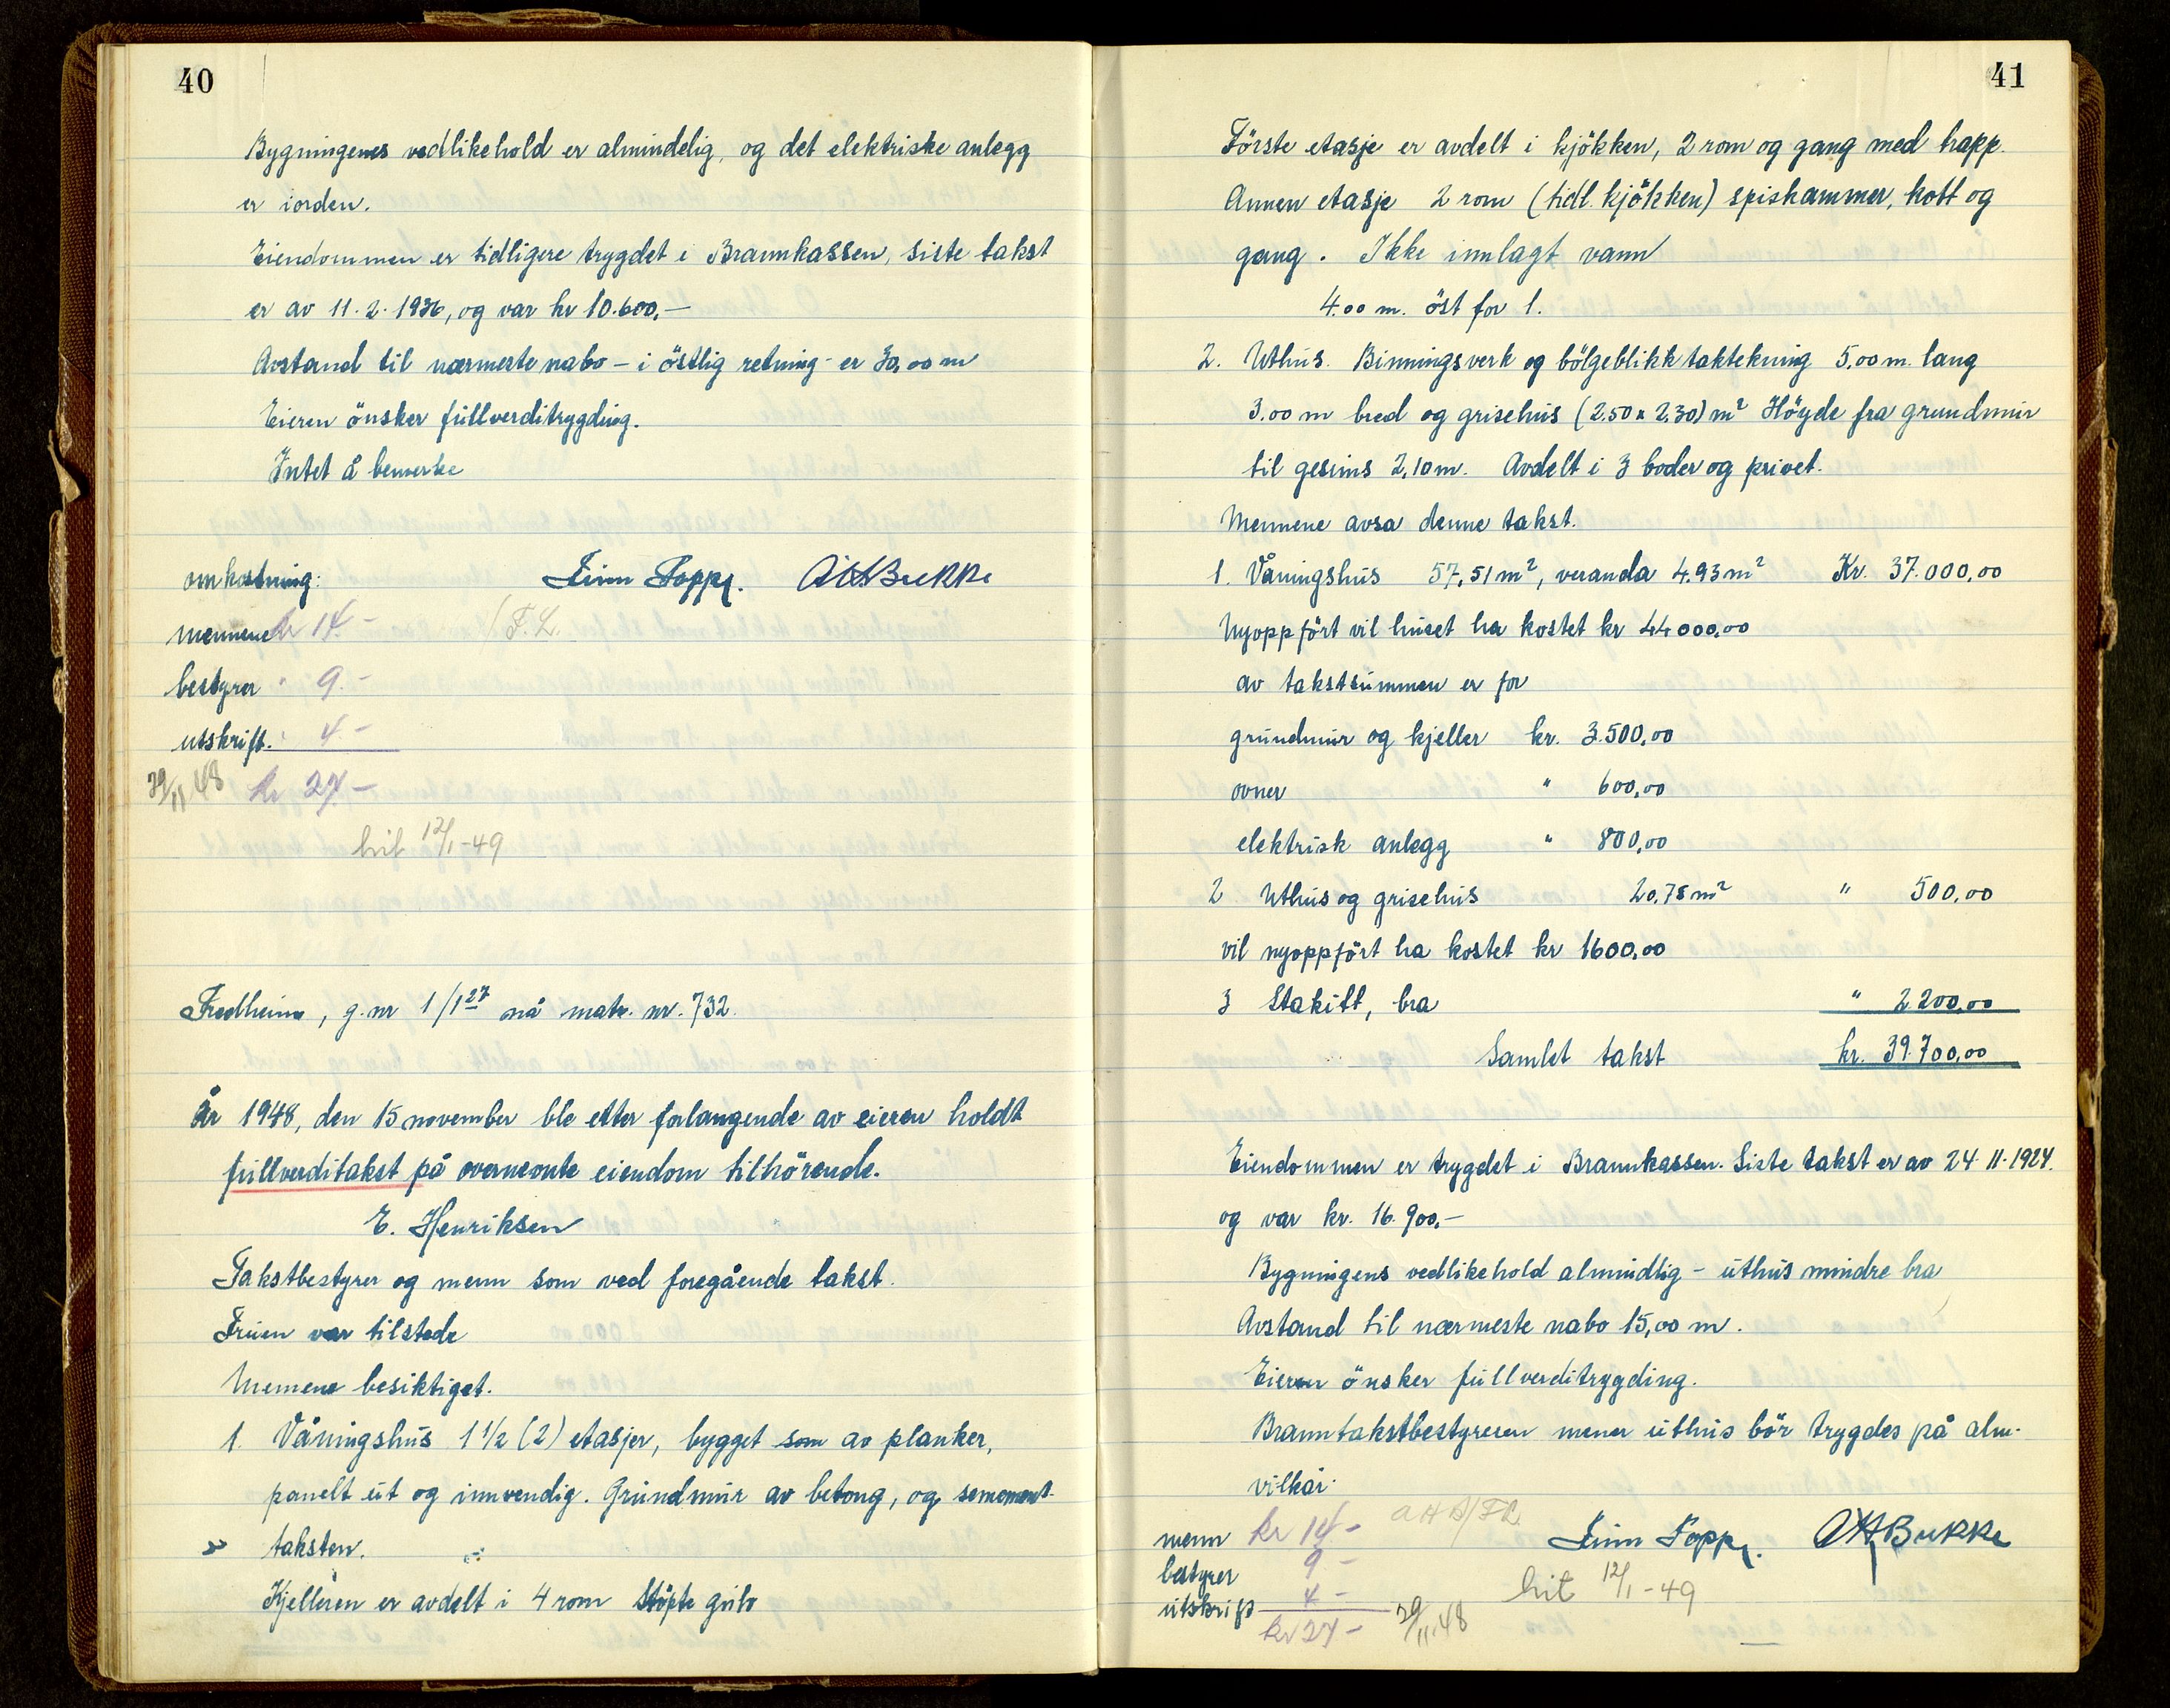 40
Bygningenes vedlikehold er almindelig, og det elektriske anlegg
er iorden.
Eiendommen er tidligere trygdet i Brannkassen, siste takst
er av 11.2.1936, og var kr 10.600,—
Avstand til nærmeste nabo – i östlig retning – er 30,00 m
Eieren önsker fullverditrygding.
Intet å bemerke
omkostning:
Finn Fopp. AHBukke
mennene kr 14.-
/F.L.
bestyrer " 9.-
utskrift. " 4.-
29/11 48 kr 27-
hit 12/1-49
Fredheim, g.nr 1/1 27 nå matr. nr. 732.
År 1948, den 15 november ble etter forlangende av eieren holdt
fullverditakst på overneonte eiendom tilhörende.
E. Henriksen
Takstbestyrer og menn som ved foregående takst.
Fruen var tilstede
Mennene besiktiget.
1. Våningshus 1 1/2 (2) etasjer, bygget som av planker,
panelt ut og innvendig. Grundmur av betong, og sement-
taksten.
Kjelleren er avdelt i 4 rom Stöpte gulv
41
Förste etasje er avdelt i kjökken, 2 rom og gang med trapp.
Annen etasje 2 rom (tidl. kjökken) spiskammer, kott og
gang. Ikke innlagt vann
4.00 m. öst for 1.
2. Uthus. Binningsverk og bölgeblikk taktekning 5,00 m. lang
3.00 m bred og grisehus (2.50 x 2,30) m² Höyde fra grundmur
til gesims 2,10 m. Avdelt i 3 boder og privet.
Mennene avsa denne takst.
1. Våningshus 57,51 m², veranda 4.93 m² Kr. 37.000,00
Nyoppfört vil huset ha kostet kr 44000,00
av takstsummen er for
grundmur og kjeller kr. 3.500,00
ovner " 600,00
elektrisk anlegg " 800,00
2 Uthus og grisehus 20,75 m² " 500,00
vil nyoppfört ha kostet kr 1600,00
3 Stakitt, bra " 2.200,00
Samlet takst kr. 39.700,00
Eiendommen er trygdet i Brannkassen. Siste takst er av 24.11.1924.
og var kr. 16.900,—
Bygningens vedlikehold almindlig – uthus mindre bra
Avstand til nærmeste nabo 15,00 m.
Eieren önsker fullverditrygding.
Branntakstbestyreren mener uthus bör trygdes på alm.
vilkår.
menn kr 14- AHB/FL
Finn Fopp. AHBukke
bestyrer 9-
utskrift 4-
hit 12/1-49
kr 27- 29/11.48